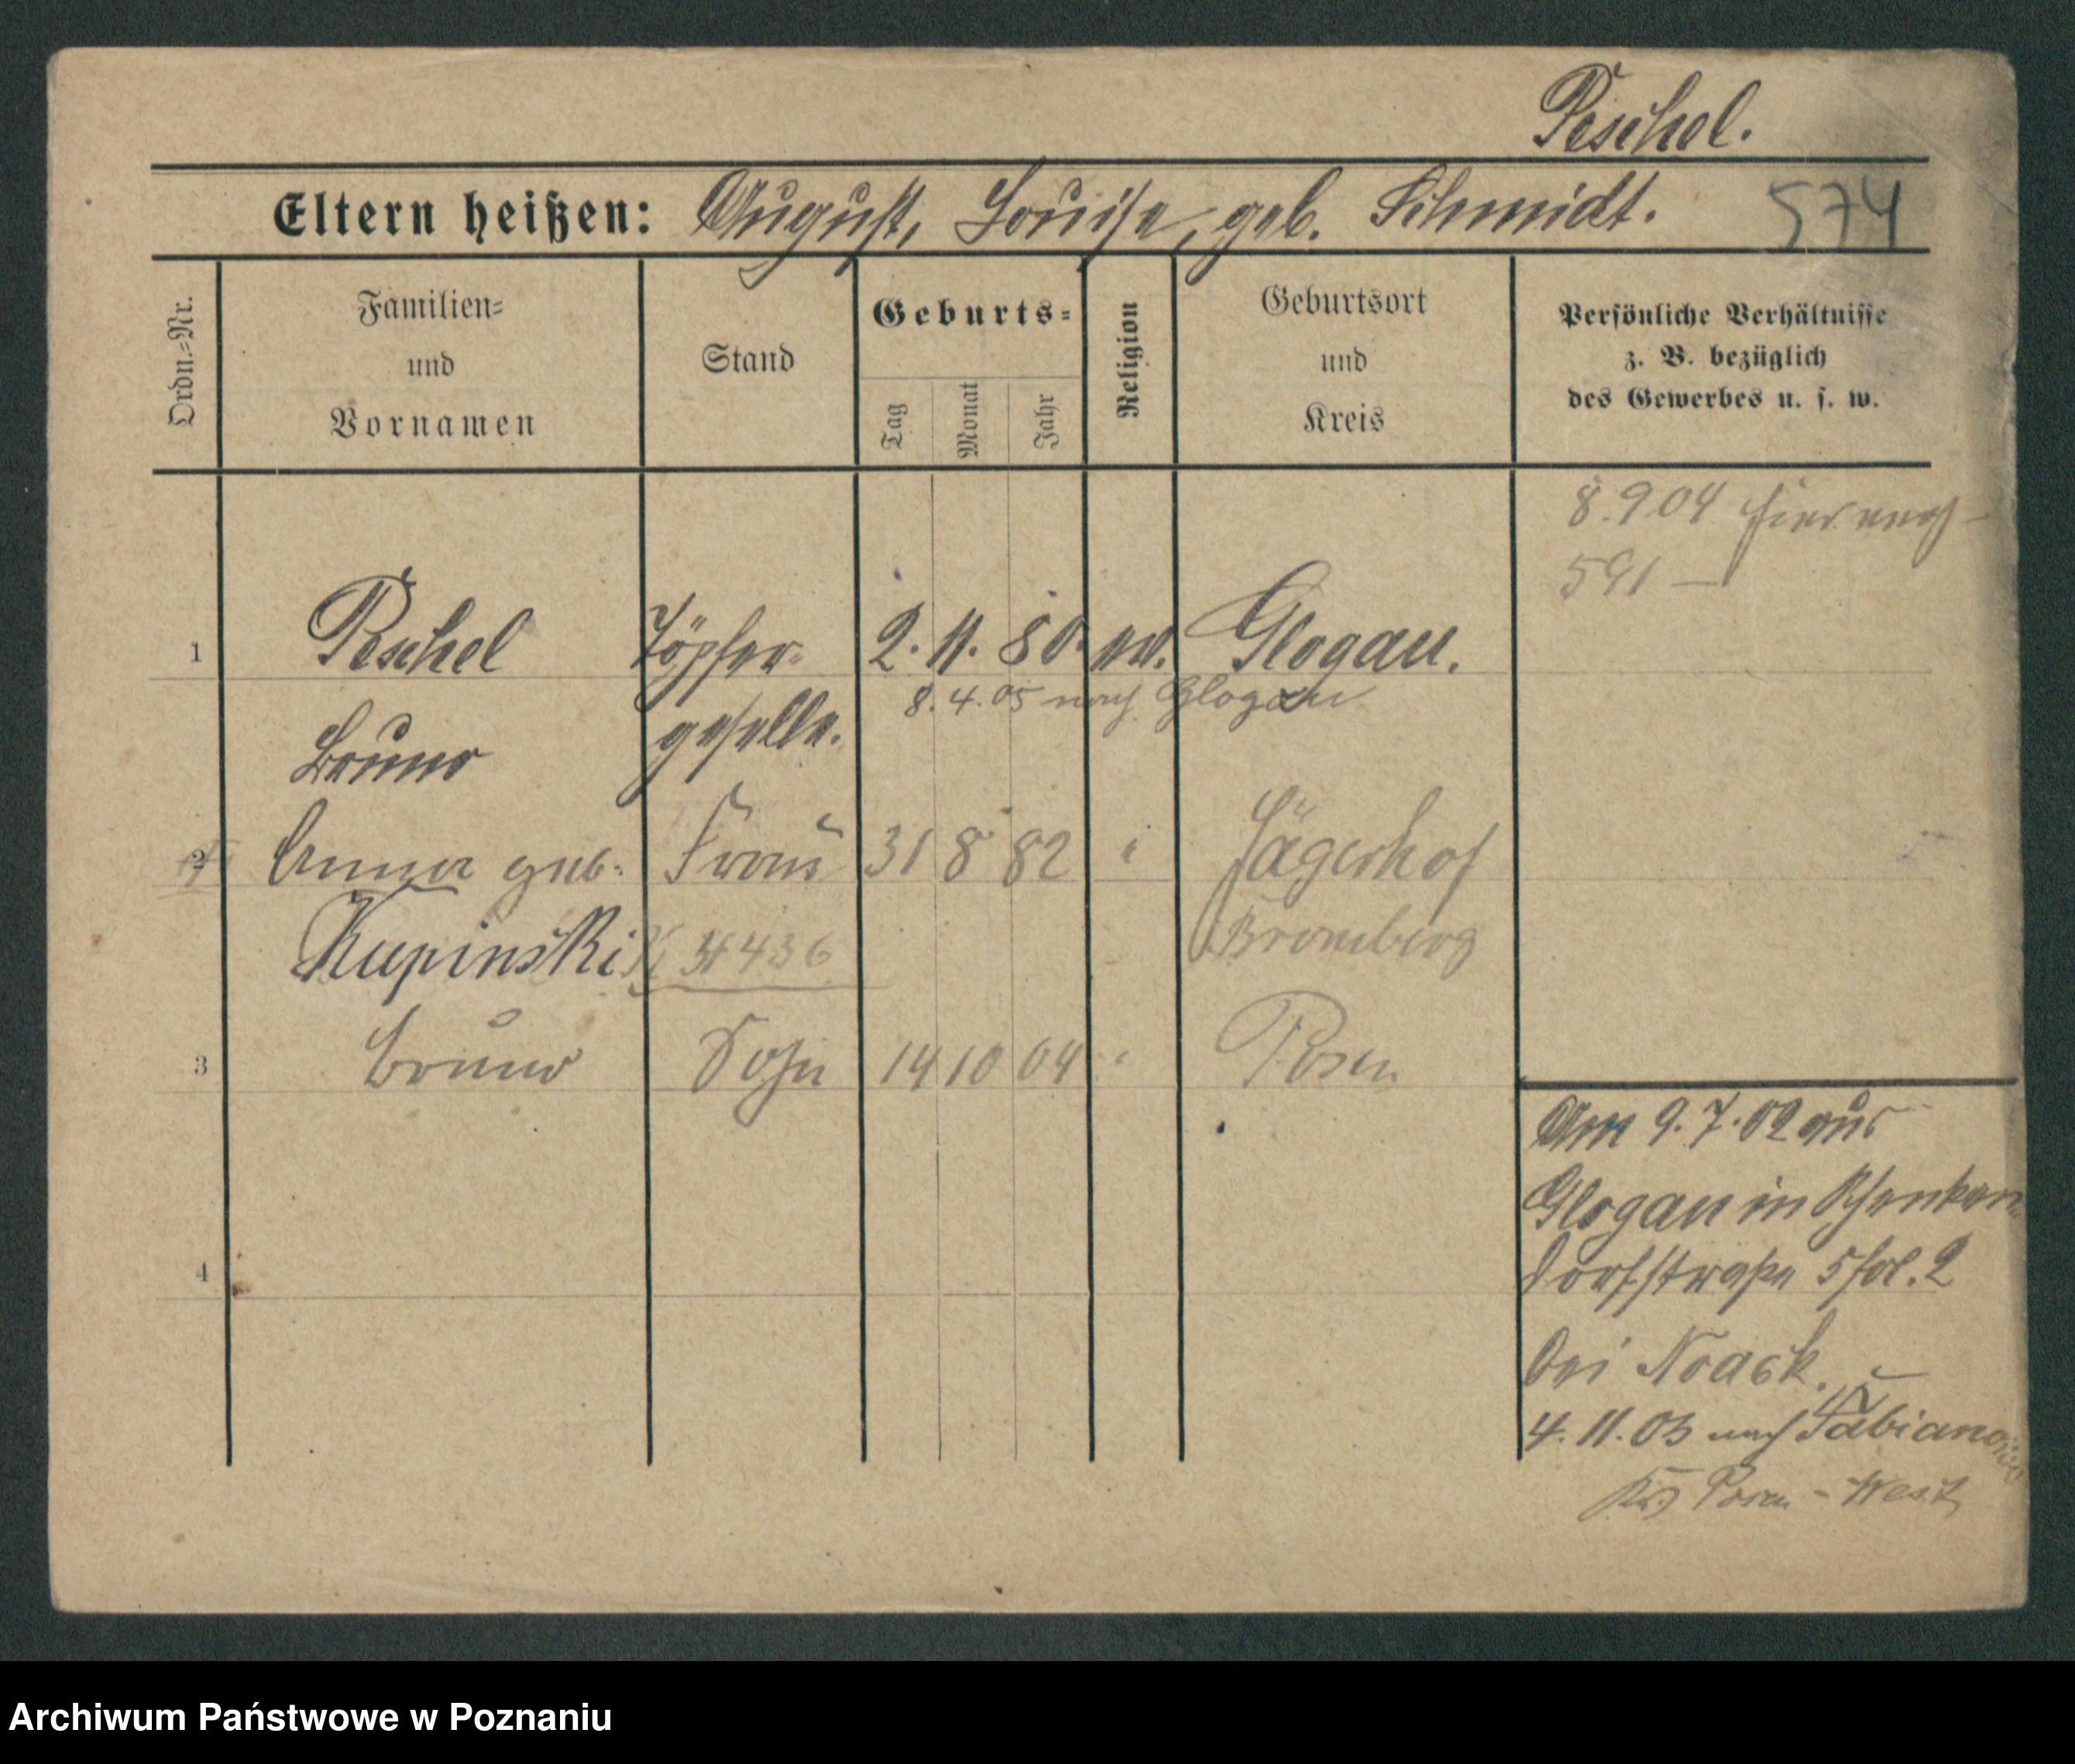 Peschel.
Eltern heißen: August, Louise, geb. Schmidt. 574
Ordn.-Nr.
Familien-
und
Vornamen
Stand
Geburts-
Tag
Monat
Jahr
Religion
Geburtsort
und
Kreis
Persönliche Verhältnisse
z. B. bezüglich
des Gewerbes u. s. w.
8.9 04
591 —
1 Peschel Töpfer- 2. 11. 80. ev. Glogau.
8. 4. 05 nach Glogau
Bruno geselle.
2 Anna geb. Frau 31 8 82 Jägerhof
Kupinski 436 Bromberg
3 Bruno Sohn 14 10 04 Posen
Am 9. 7. 02 aus
Glogau in Schenken
dorfstraße 5 fol. 2
4
bei Noack.
4. 11. 03 nach Fabianowo
Krs Posen - West
Archiwum Państwowe w Poznaniu